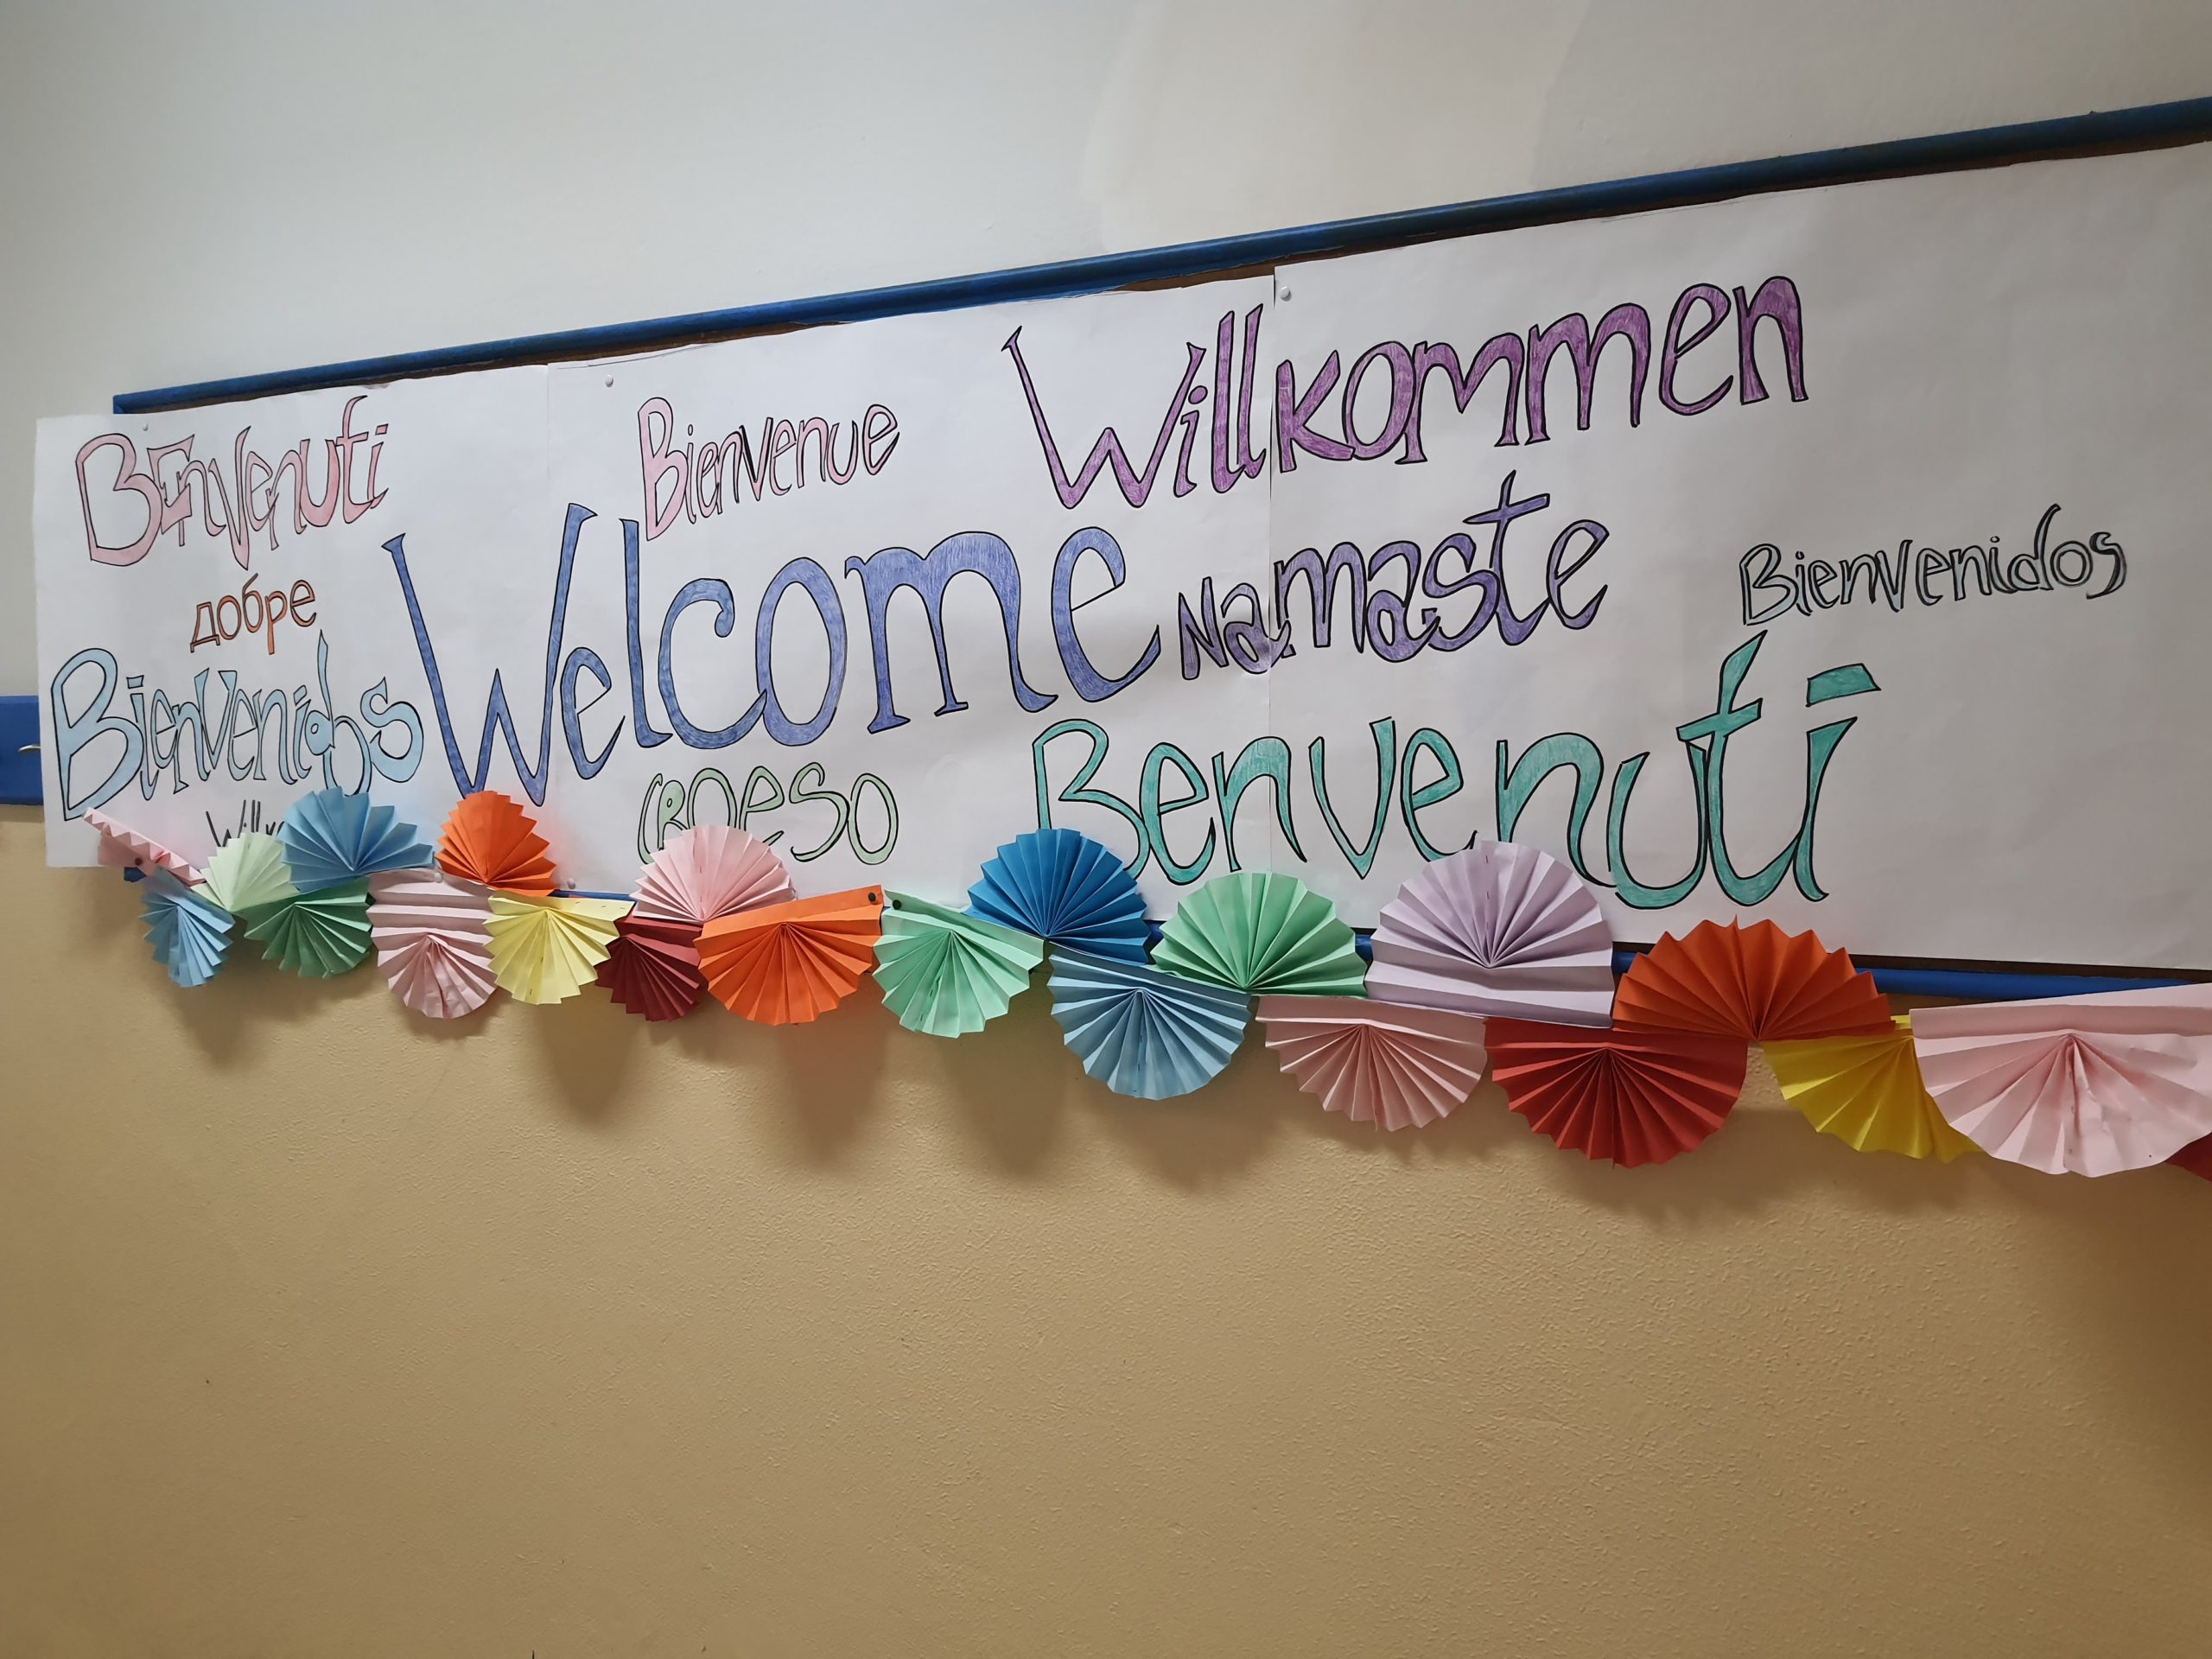 Benvenuti
добре
Bienvenidos
Welcome
Bienvenue
Croeso
Willkommen
Namaste
Benvenuti
Bienvenidos